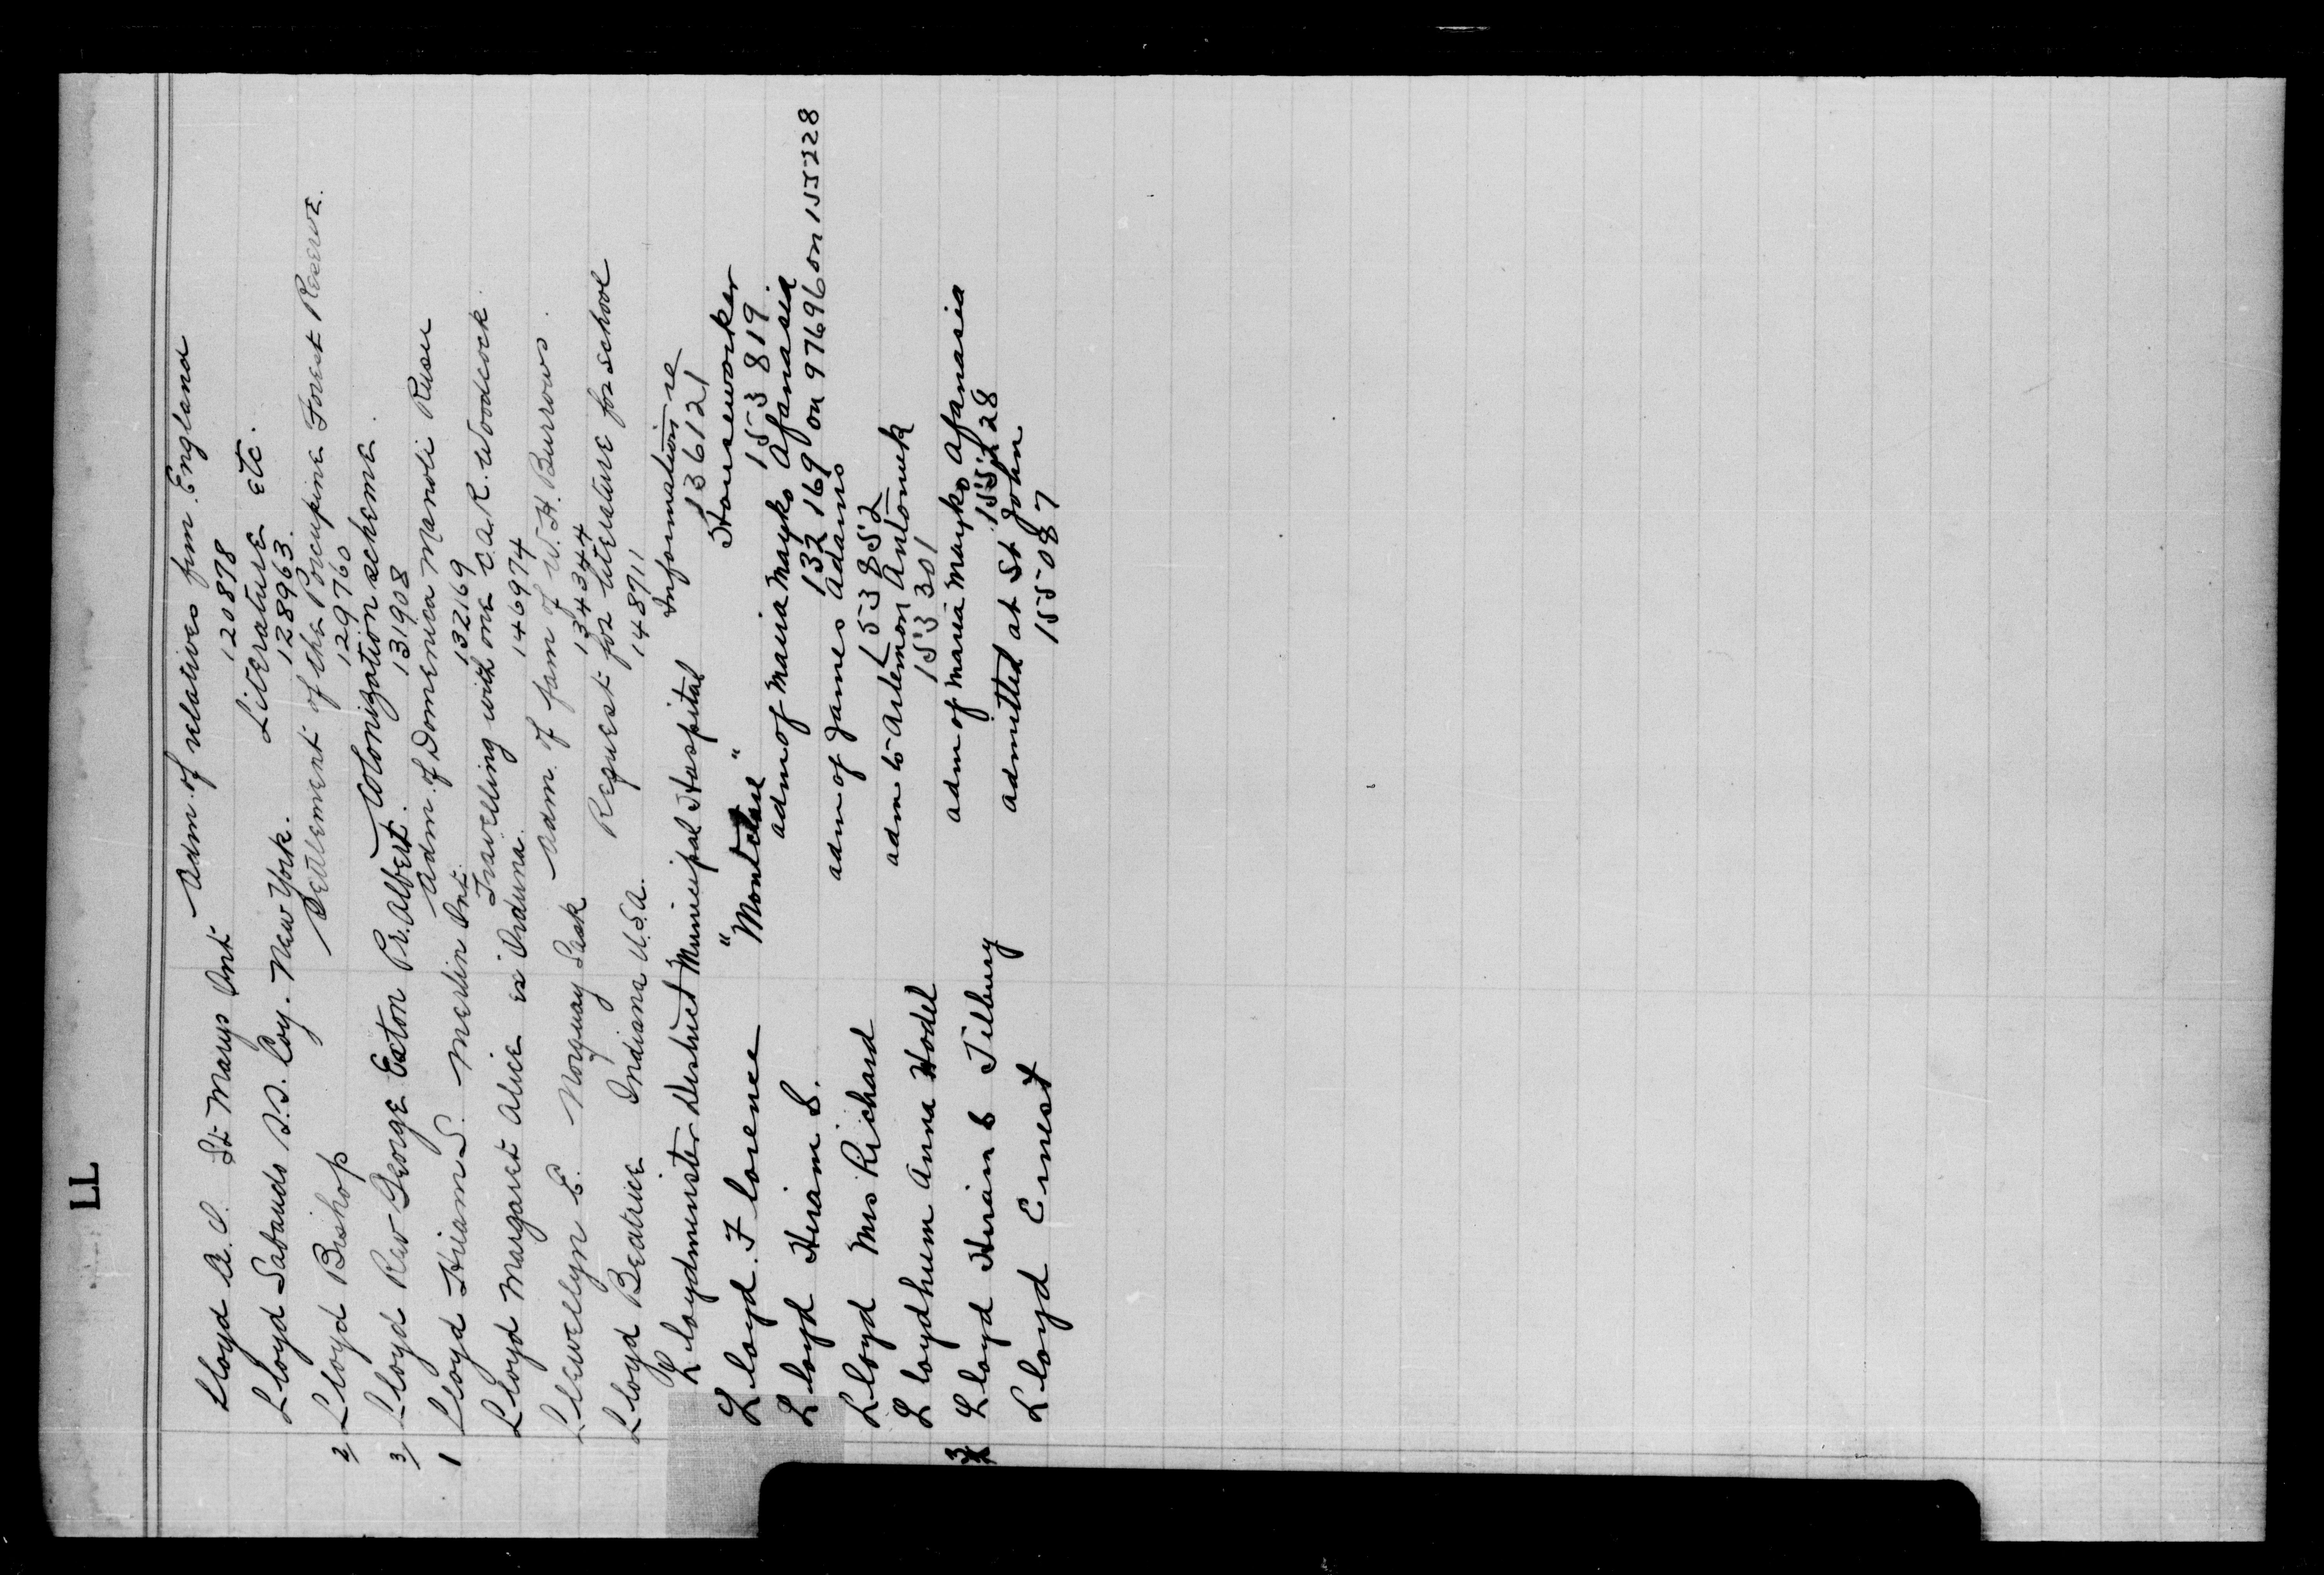 LL
Lloyd A. C. St Marys Ont Adm. of relatives from England
120878
Lloyd Sabaudo S.S. Coy. New York. Literature etc.
128963.
2/ Lloyd Bishop Settlement of the Porcupine Forest Reserve.
129760
3/ Lloyd Rev George Exton Pr. Albert. Colonization scheme.
131908
1 Lloyd Hiram S. Merlin Ont. Adm. of Domenica Manoli Rusu
132169
Lloyd Margaret Alice ex Orduna. Travelling with one C.A.R. Woodcock
146974
Llewellyn E. Norquay Sask Adm. of fam of W. H. Burrows.
134344
Lloyd Beatrice Indiana U.S.A. Request for literature for school
148711
Lloydminster District Municipal Hospital Information re
136121
Lloyd. Florence "Montclare" Houseworker
153819.
Lloyd Hiram S. adm of Maria Mayko Afanasia
132169 on 97696 on 155228
Lloyd Mrs Richard adm of James Adams
153852
Lloydhum Anna Hodel adm to Artemon Antoniuk
153301
3 Lloyd Hiram S Tilbury adm of Maria Mayko Afanasia
155228
Lloyd Ernest admitted at St John
155087